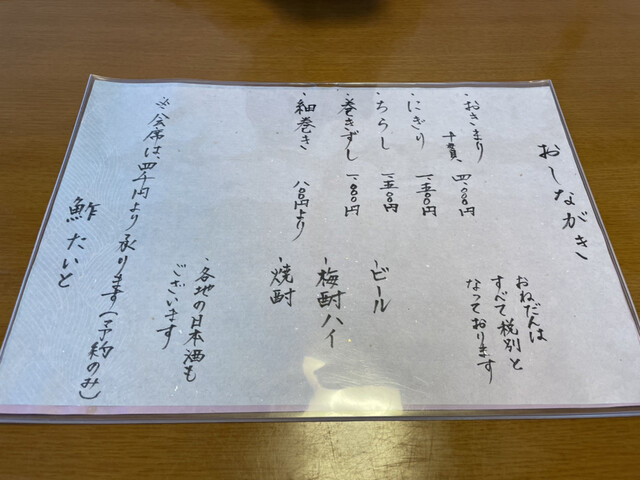 おしながき
おねだんは
すべて税別と
なっております
・おきまり
十貫、四、〇〇〇円
・にぎり 一、五〇〇円
・ちらし 一、五〇〇円
・巻きずし 一、〇〇〇円
・細巻き 八〇〇円より
・ビール
・梅酎ハイ
・焼酎
・各地の日本酒も
ございます
※会席は、四千円より承ります（予約のみ）
鮓たいと